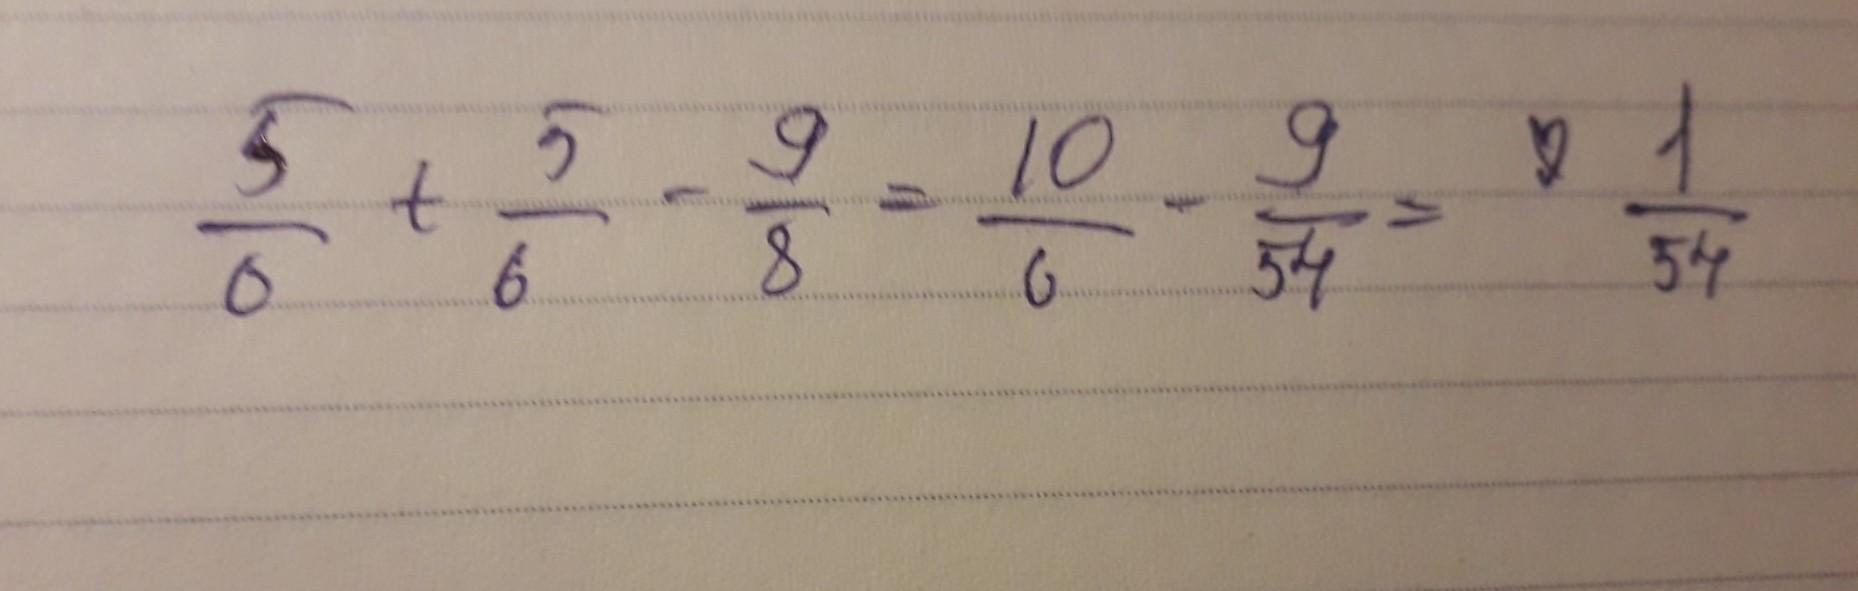 5/6 + 5/6 - 9/8 = 10/6 - 9/54 = 1/54